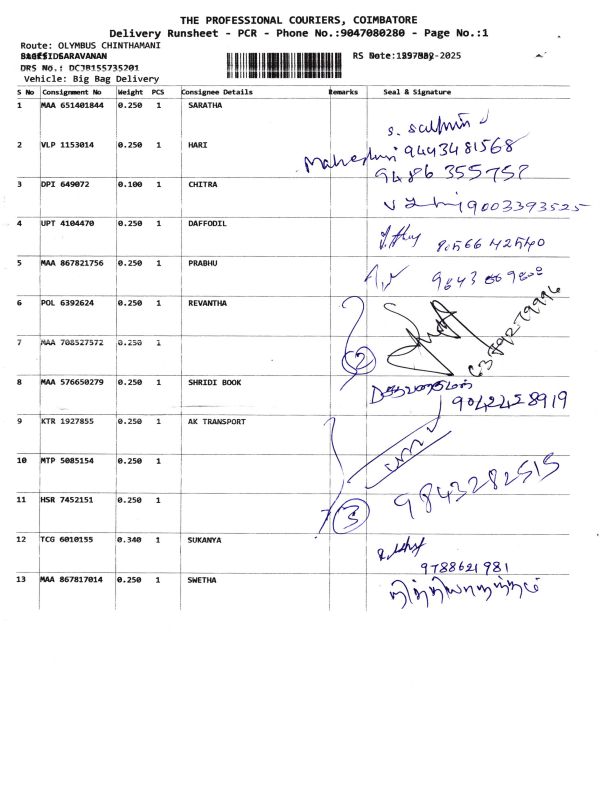 THE PROFESSIONAL COURIERS, COIMBATORE
Delivery Runsheet - PCR - Phone No.:9047080280 - Page No.:1
Route: OLYMBUS CHINTHAMANI
DRS No.: DCJB155735201
Vehicle: Big Bag Delivery
S No Consignment No Weight PCS Consignee Details Remarks Seal & Signature
1 MAA 651401844 0.250 1 SARATHA
2 VLP 1153014 0.250 1 HARI 9443481568
9486 355758
3 DPI 649072 0.100 1 CHITRA 9003393525
4 UPT 4104470 0.250 1 DAFFODIL
5 MAA 867821756 0.250 1 PRABHU
6 POL 6392624 0.250 1 REVANTHA
7 MAA 708527572 0.250 1 2
8 MAA 576650279 0.250 1 SHRIDI BOOK
9 KTR 1927855 0.250 1 AK TRANSPORT
10 MTP 5085154 0.250 1
11 HSR 7452151 0.250 1 3 9843282515
12 TCG 6010155 0.340 1 SUKANYA
9788621981
13 MAA 867817014 0.250 1 SWETHA